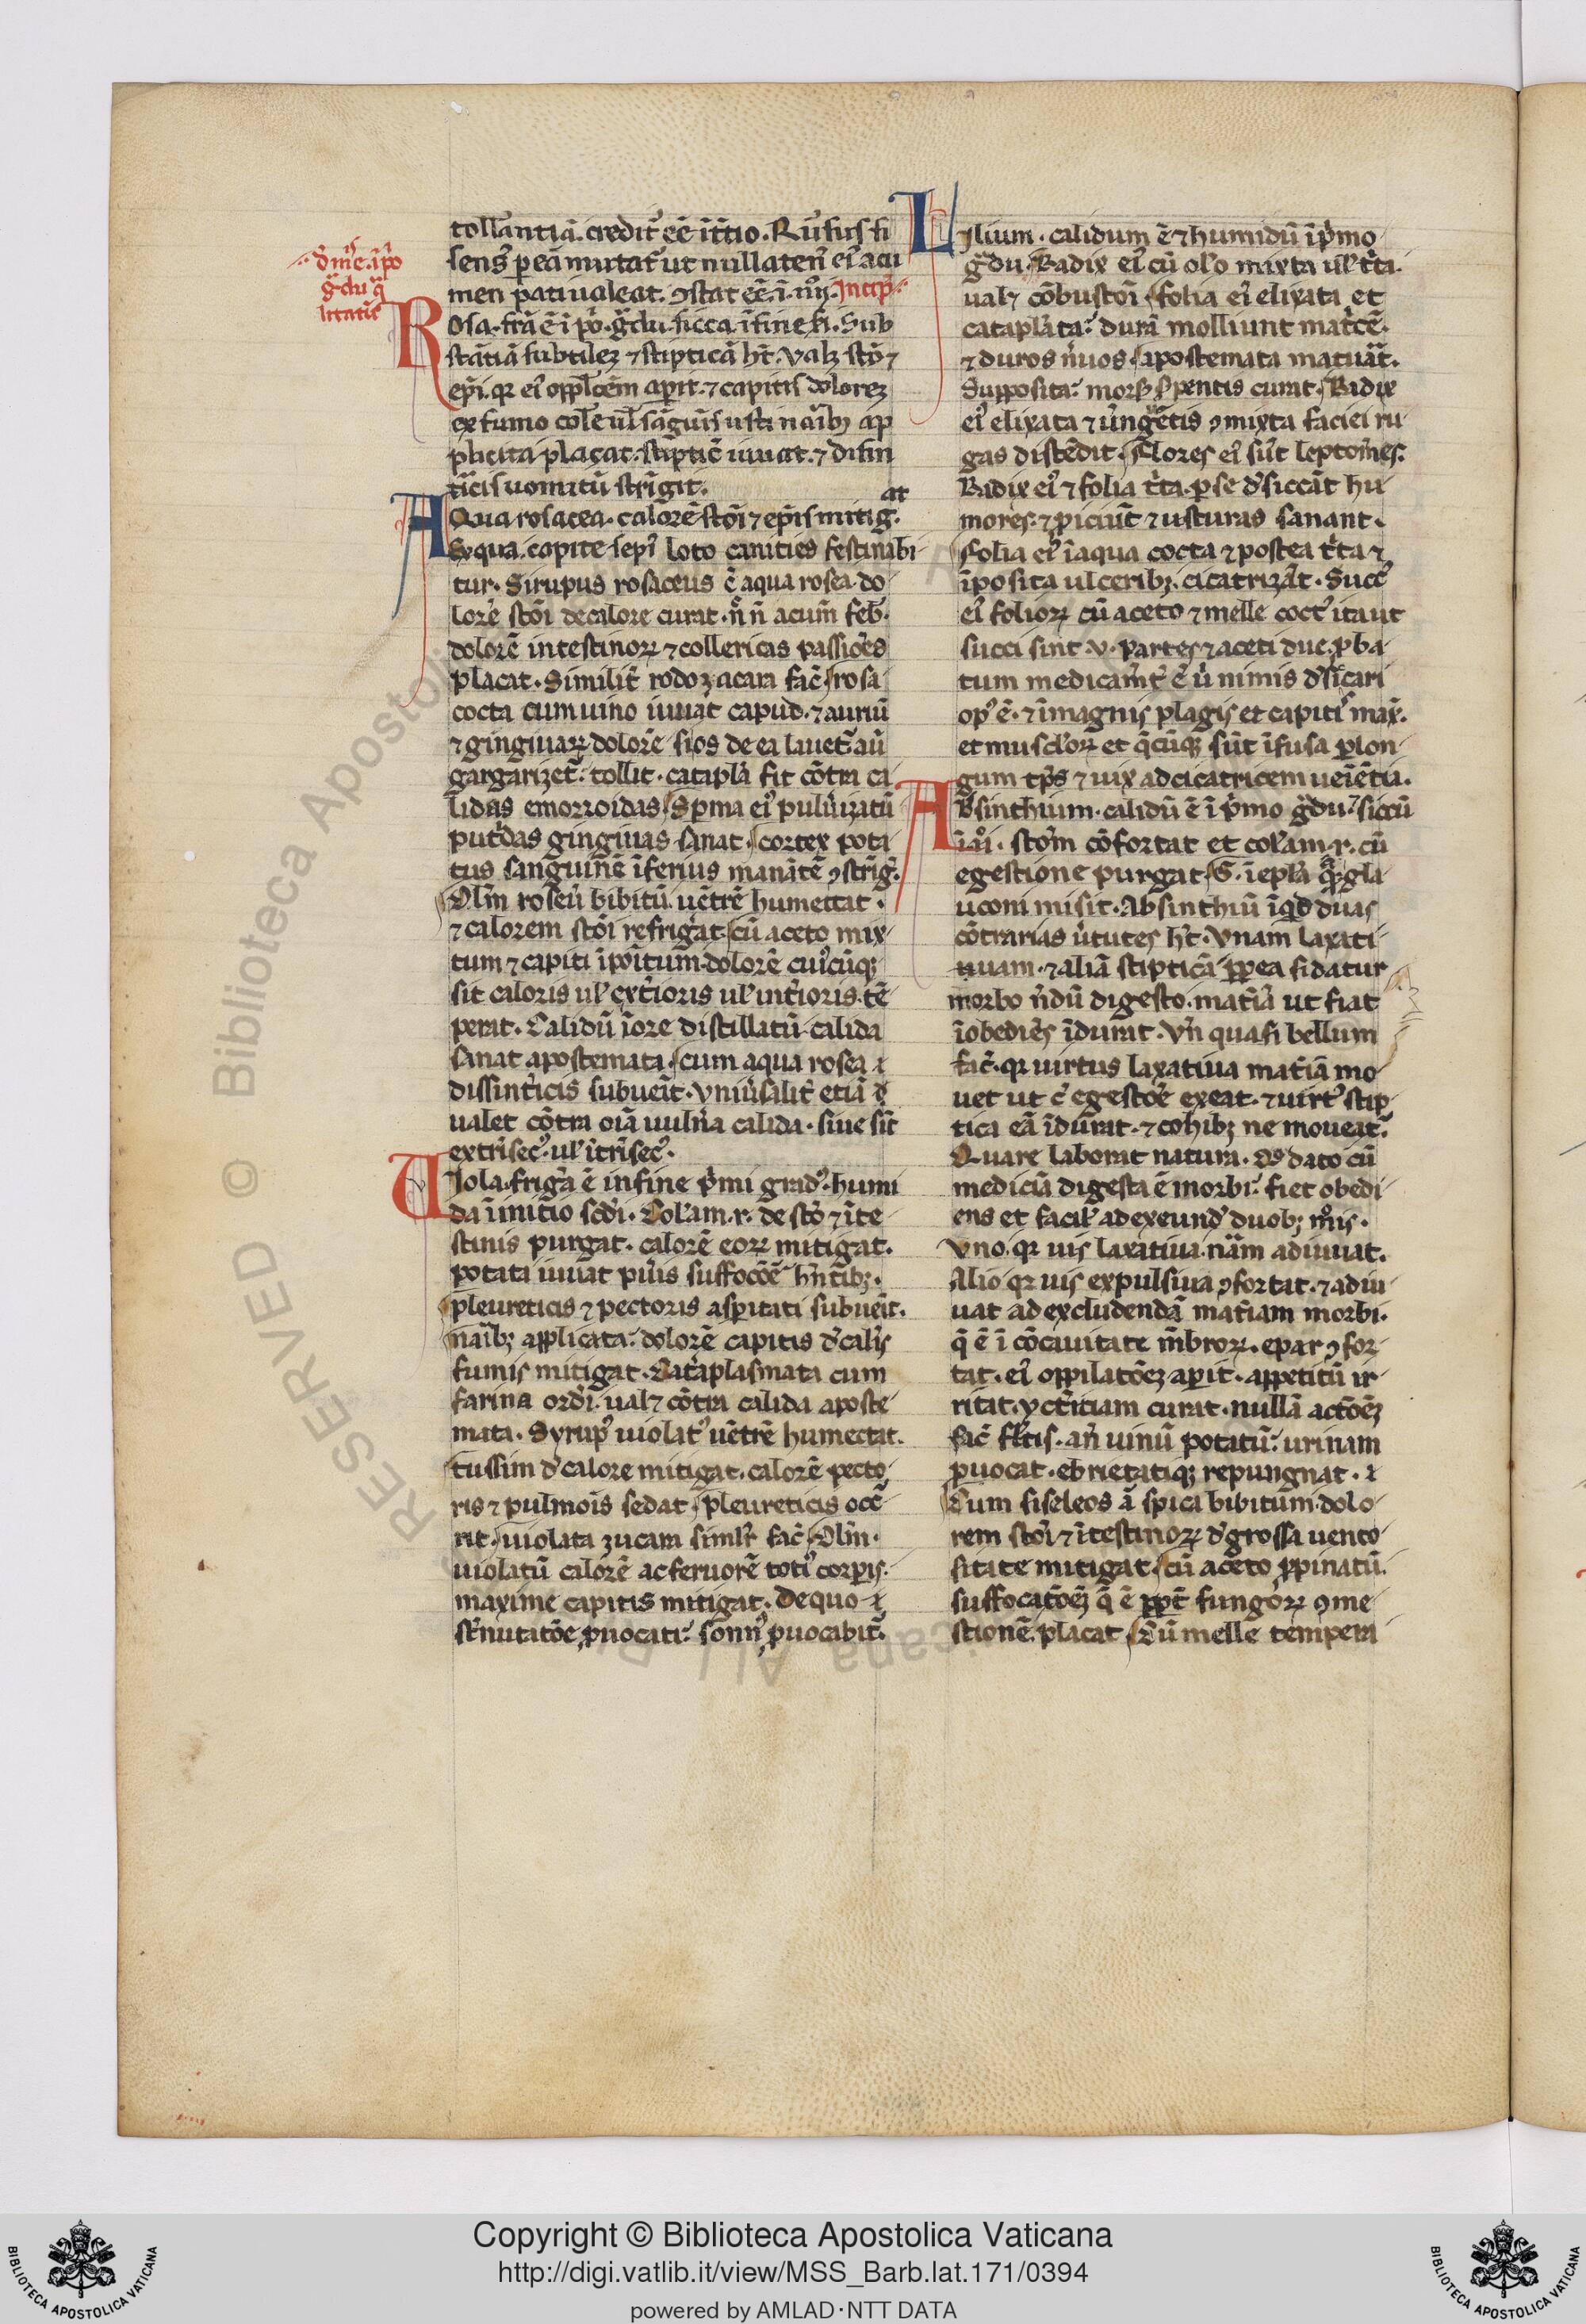 tollantiã. credit᷑ eẽ ĩitio. Rufus si
sens᷒ p eã mutat᷑ ut nullaten᷒ ei᷒ acu
men pati ualeat. ꝯstat eẽ. ĩ. iiij.
ĩ p͛o
g̃du q̃
litatis
Rosa. fr̃a ẽ ĩ p͛o. g̃du. sicca. ĩ fine. Sub
stãtiã subtilez ⁊ stipticã hʒ. ualʒ sto ⁊
ep̃i. qꝛ ei᷒ opp̃lc̃em aꝑit. ⁊ capitis dolorez
ex fumo col̃e uł sãguis usti naĩbʒ ap
plicita placat. stiptic̃ iuuat. ⁊ disin
tic̃is uomitũ strĩgit.
AQua rosacea. calorẽ stõi ⁊ ep̃is mitigat.
Ex qua. capite sepi᷒ loto canities festinabi
tur. Sirupus rosaceus ẽ aqua rosea. do
lorẽ stõi de calore curat. ñ acum̃ feb̃.
dolorẽ intestinoꝝ ⁊ collericas passiões
placat. Similit᷑ rodozacara fac̃ rosa
cocta cum uino iuuat capud. ⁊ auriũ
⁊ gingiuaꝝ dolorẽ. si os de ea lauet᷑ aũ
gargarizet᷑. tollit. catapla fit cõtra ca
lidas emorroidas. Sperma ei᷒ puluerizatũ
putridas gingiuas sanat. cortex pota
tus sanguinẽ ĩferius manãtẽ ꝯstrĩg᷒.
Olm̃ roseũ bibitũ. uẽtrẽ humectat.
⁊ calorem stõi refrigerat. cũ aceto mix
tum ⁊ capiti ĩpõitum. dolorẽ cui᷒cũqꝫ
sit caloris uł ext̃ioris uł int̃ioris. tẽ
perat. Calidũ ĩ ore distillatũ calida
sanat apostemata. cum aqua rosea ⁊
dissint̃icis subueĩt. Vniũsalit᷑ etiã
ualet cõtra oĩa uulñа calida. siue sĩt
extrĩsec᷒ uł ĩtrĩsec᷒.
UIola. frig̃a ẽ in fine p͛mi grad᷒. humi
da ĩ initio scd̃i. Col̃am. r. de sto ⁊ ĩte
stinis purgat. calorẽ eoꝝ mitigat.
potata iuuat pũis suffocõẽ hñtibʒ.
pleureticis ⁊ pectoris asꝑitati subueĩt.
naribʒ applicata. dolorẽ capitis d᷒ cal̃is
fumis mitigat. Cataplasmata cum
farina ordĩ. ualʒ cõtra calida aposte
mata. Syrup᷒ uiolat᷒ uẽtrẽ humectat.
tussim d᷒ calore mitigat. calorẽ pecto
ris ⁊ pulmois sedat. pleureticis occ̃
rit. uiolata zucara simlr̃ fac̃. Olm̃.
uiolatũ calorẽ ac feruorẽ toti᷒ corꝑis.
maxime capitis mitigat. De quo
st̃nutatõe ꝓuocati. sõnũ ꝓuocabit᷑.
LIlium. calidum ẽ ⁊ humidũ ĩ p͛mo
g̃du. Radix ei᷒ cũ ol̃o mixta uł t̃ita.
ualʒ cõbustõi. folia ei᷒ elixata et
cataplata. durã molliunt mat̃cẽ.
⁊ duros ñuos. apostemata maturãt.
Supposita. mors᷒ serpentis curat. Radix
ei᷒ elixata ⁊ ũnguẽtis ꝯmixta faciei ru
gas distẽdit. Flores ei᷒ sũt leptom̃es.
Radix ei᷒ ⁊ folia t̃ita. ꝑ se d᷒siccãt hu
mores. ⁊ piciũt ⁊ usturas sanant.
Folia ei᷒ ĩ aqua cocta ⁊ postea t̃ita ⁊
ĩposita ulceribʒ. cicatrizãt. Succ᷒
ei᷒ folioꝝ cũ aceto ⁊ melle coct᷒ ita ut
succi sint. v. partes ⁊ aceti due. ꝓba
tum medicam̃t᷑ ẽ ũ nimis d᷒siccari
op᷒ ẽ. ⁊ ĩ magnis plagis et capiti᷒ max̃.
et musculoꝝ et q̃cũqꝫ sũt ĩfusa ꝑ lon
gum tp̃s ⁊ uix ad cicatricem ueĩẽtia.
ABsinthium. calidũ ẽ ĩ p͛mo g̃du. siccũ
ĩ. ij. stom̃ cõfortat et col̃am. r. cũ
egestione purgat. G. ĩ epl̃a q̃ gla
uconi misit. Absinthiũ ĩqd̃ duas
cõtrarias ũtutes hʒ. Vnam laxati
uam. ⁊ aliã stipticã. ꝓpea si datur
morbo ñdũ digesto. mat̃iã ut fiat
ĩobediẽs ĩdurat. Vñ quasi bellum
fac̃. qꝛ uirtus laxatiua mat̃iã mo
uet ut c̃ egestõe exeat. ⁊ uirt᷒ stip
tica eã ĩdurat. ⁊ cohibʒ ne moueat᷑.
Quare laborat natura. Qd̃ dato cũ
mediciã digesta ẽ morbi. fiet obedi
ens et facil᷑ ad exeund᷒ duobʒ m̃is.
Vno. qꝛ uis laxatiua. nãm adiuuat.
Alio qꝛ uis expulsiua ꝯfortat. ⁊ adiu
uat ad excludendã mat̃iam morbi.
q̃ ẽ ĩ cõcauitate mẽbroꝝ. epar ꝯfor
tat. ei᷒ oppilatõez aꝑit. appetitũ ir
ritat. yct̃iciam curat. nullã actõez
fac̃ fl̃tis. añ uinũ potatũ. urinam
ꝓuocat. ebrietatiqꝫ repungnat. ⁊
Cum siseleos ã spica bibitum. dolo
rem stõi ⁊ ĩtestinoꝝ d᷒ grossa uento
sitate mitigat. cũ aceto ꝓpinatũ.
suffocatõez q̃ ẽ ꝓpt̃ fungoꝝ ꝯme
stionẽ placat. Cũ melle tempera
Copyright © Biblioteca Apostolica Vaticana
http://digi.vatlib.it/view/MSS_Barb.lat.171/0394
powered by AMLAD·NTT DATA
BIBLIOTECA APOSTOLICA VATICANA
BIBLIOTECA APOSTOLICA VATICANA